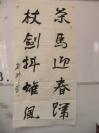 茶馬迎春
杖劍抖雄風